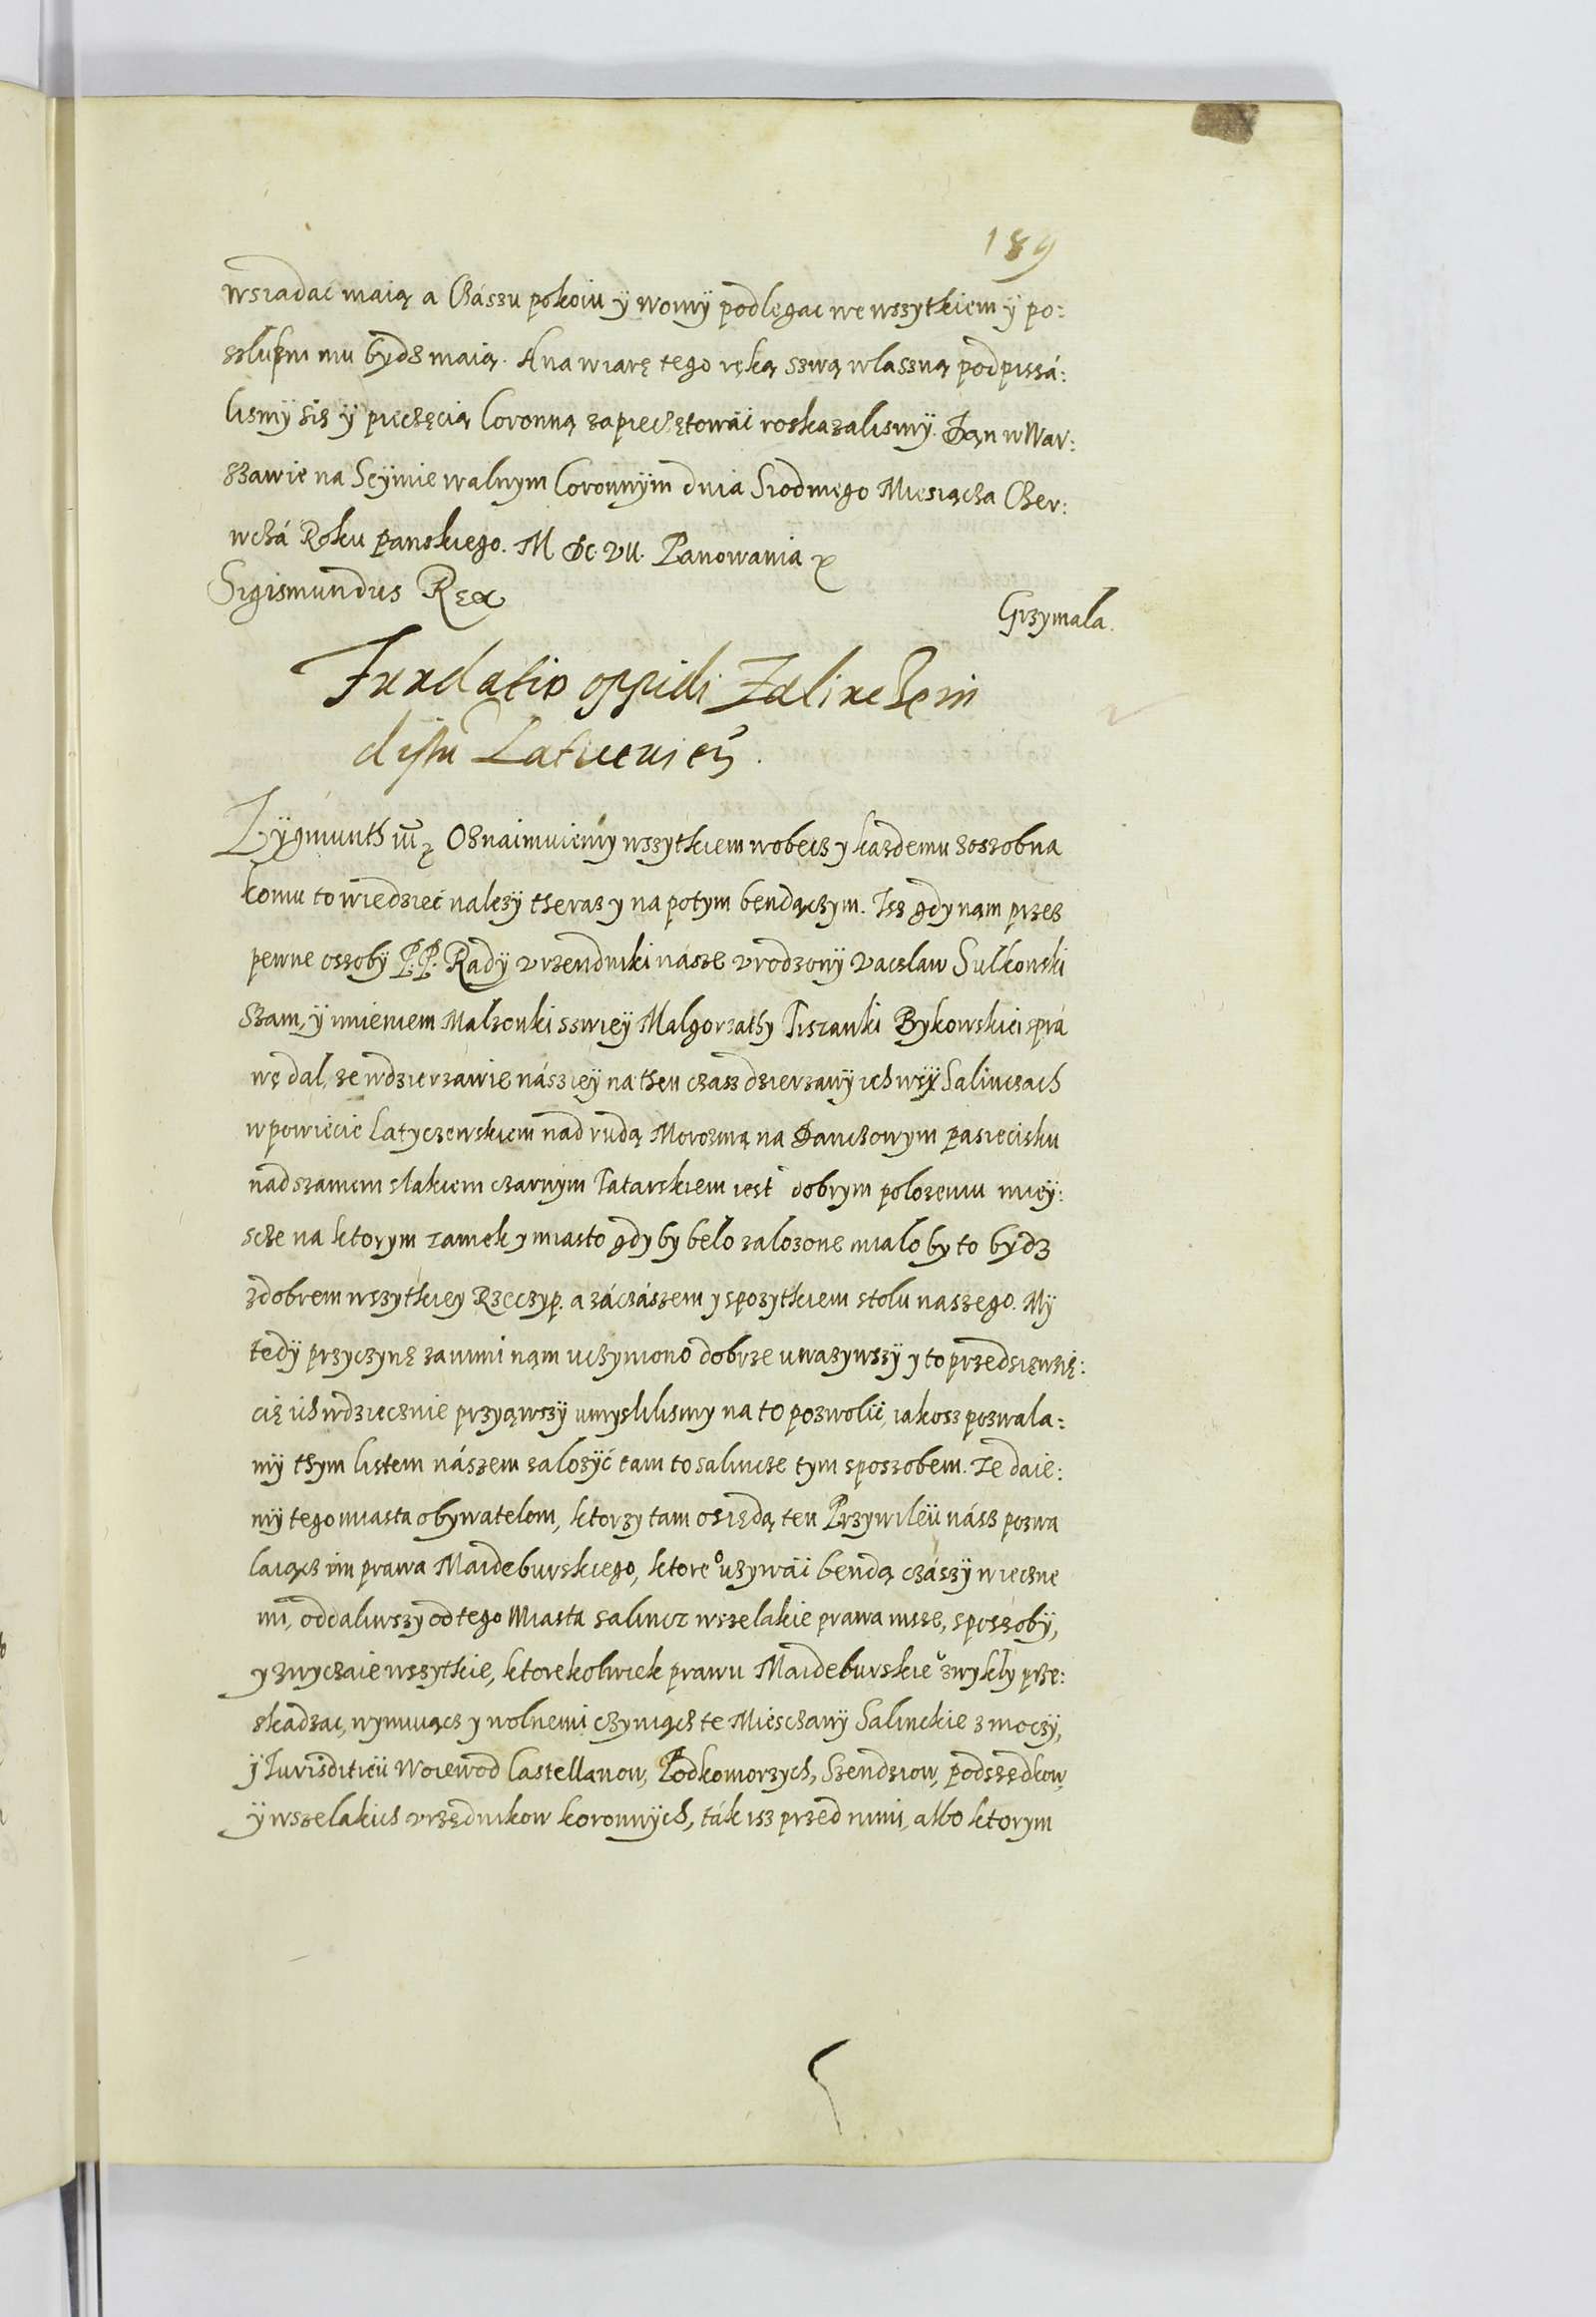 189
wsiadac maią a Czászu pokoiu ÿ woinÿ podlegac we wszytkiem ÿ po:
szluszni mu bydz maią. A na wiarę tego ręką szwą wlaszną podpiszá:
lismÿ się ÿ pieczęcią Coronną zapieczętowác roskazalismÿ. Dąn w War:
szawie na Seÿmie walnym Coronnÿm dnia Siodmego Miesiącza Czer:
wczá Roku panskiego. M. Dc. VII. Panowania
Sigismundus Rex
Grzymala.
Fundatio oppidi Zalincze in
distu Laticuien.
Zÿgmunth Oznaimuiemy wszytkiem wobecz y kazdemu zoszobna
komu to wiedzieć nalezÿ theraz y na potym bendączym. Isz gdy nąm przez
pewne oszobÿ P.P. Radÿ vrzendniki násze vrodzonÿ Vaczlaw Sułkowski
szam, ÿ imieniem Malzonki sswieÿ Malgorzathy Bykowskiei sprá
wę dal, ze wdzierzawie násziеÿ na then czasz dzierzawÿ ich wsÿ Salinczach
w powiecie Latyczewskiem nad rudą Morozwą na Danczowym pasiecisku
nad szamem slakiem czarnÿm Tatarskiem iest dobrym polozeniu mieÿ:
scze na ktorym zamek y miasto gdyby belo zalozone mialo by to bydz
z dobrem wszytkiey Rzeczyp. a záczászem y spozytkiem stolu naszego. Mÿ
tedÿ przyczynę zanimi nąm vczyniono dobrze uwazywszÿ y to przedsiewzię:
cię ich wdzięcznie przyąwszÿ umyslilismy na to pozwolić, iakosz pozwala:
mÿ thym listem nászem zalozÿć tam to salincze tym sposzobem. Ze daie:
mÿ tego miasta obywatelom, ktorzy tam osiędą ten Przywileÿ nász pozwa
laiącz im prawa Maideburskiego, ktoreo uzywái bendą czászÿ wieczne
mi, oddaliwszy od tego Miasta salincz wszelakie prawa insze, sposzobÿ,
y zwyczaie wszytkie, ktorekolwiek prawu Maideburskieo zwykly prze:
skadzac, wymuiącz y wolnemi czyniącz te Miesczanÿ Salinckie z moczÿ,
ÿ Iurisditieÿ Woiewod Castellanow, Podkomorzych, Szendziow, podszędkow,
ÿ wszelakich vrzędnikow koronnÿch, ták isz przed nimi, albo ktorym